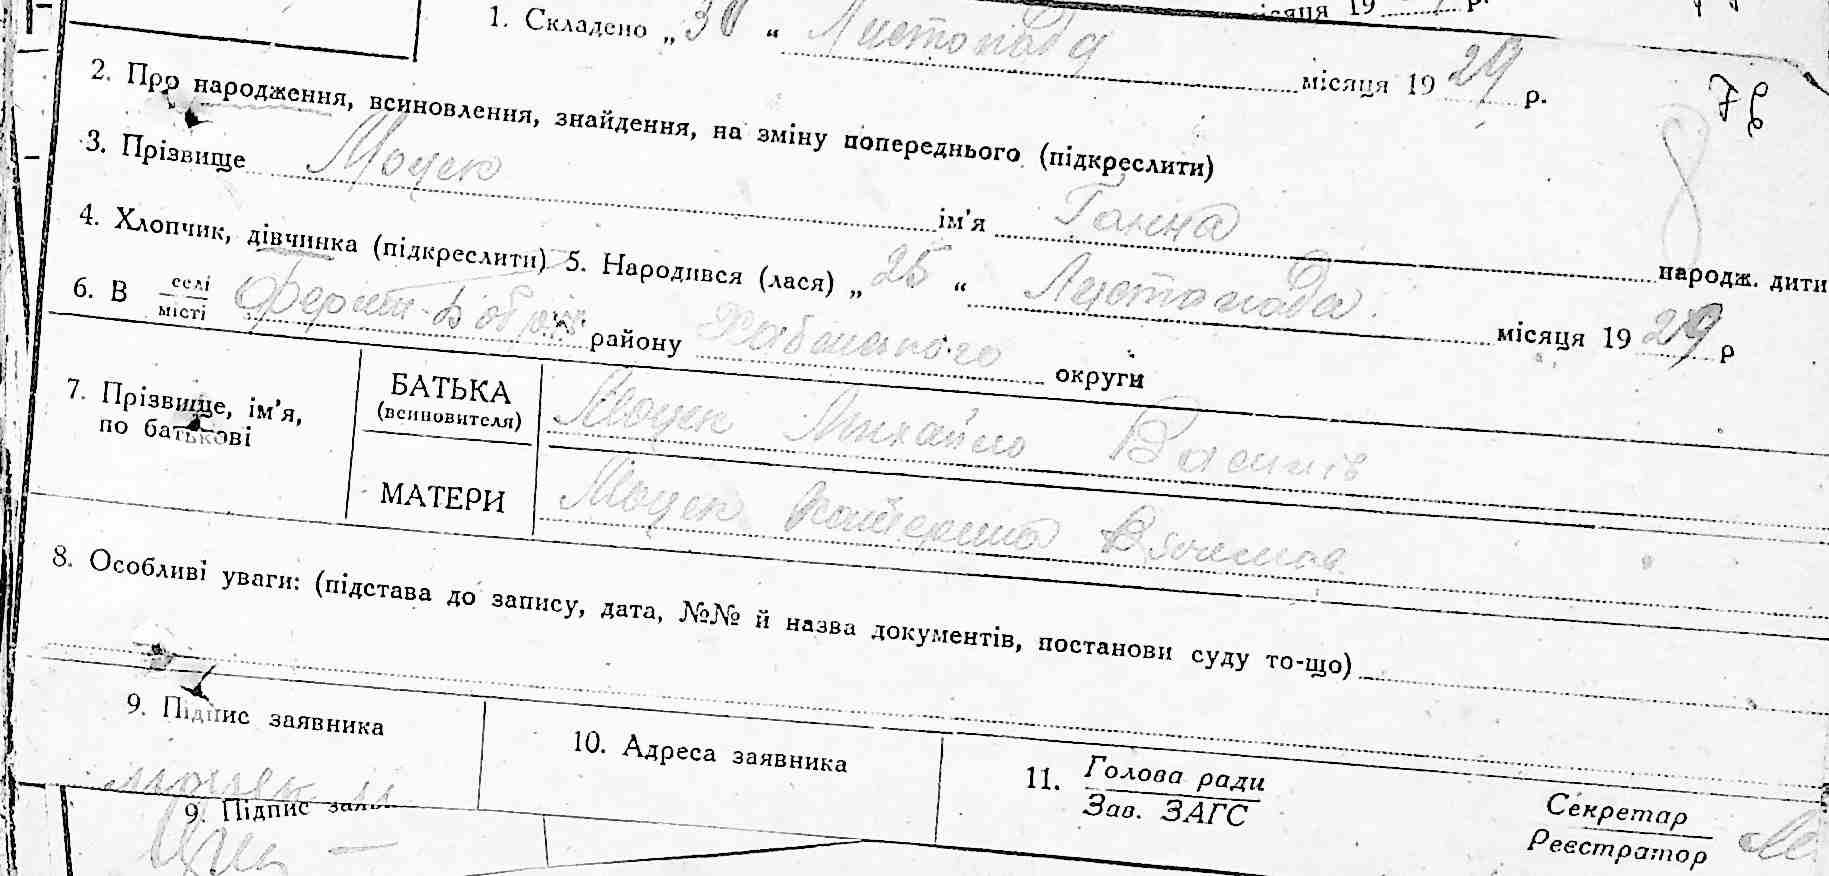 місяця 19 р.
1. Складено „ 30 “ Листопада місяця 19 29 р.
78
2. Про народження, всиновлення, знайдення, на зміну попереднього (підкреслити)
8
3. Прізвище Моцек ім'я Ганна народж. дити
4. Хлопчик, дівчинка (підкреслити) 5. Народився (лася) „ 25 “ Листопада місяця 19 29 р
6. В селі місті району Хабенського округи
7. Прізвище, ім'я, по батькові
БАТЬКА (всиновителя) Моцек Михайло Василів
МАТЕРИ Моцек Катерина
8. Особливі уваги: (підстава до запису, дата, №№ й назва документів, постанови суду то-що)
9. Підпис заявника
10. Адреса заявника
11. Голова ради
Зав. ЗАГС
Секретар
Реєстратор
Моцек М
9. Підпис заяв